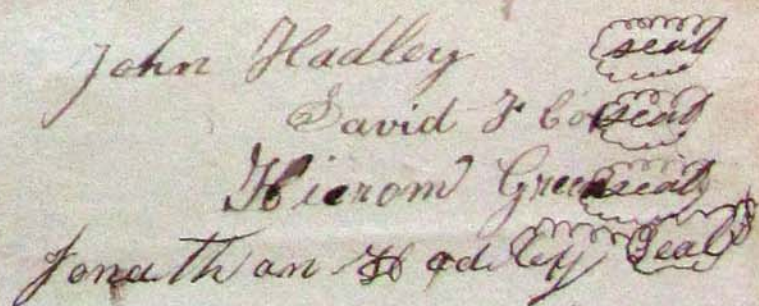 John Hadley seal
David F Cox seal
Hierom Green seal
Jonathan Hadley Seal